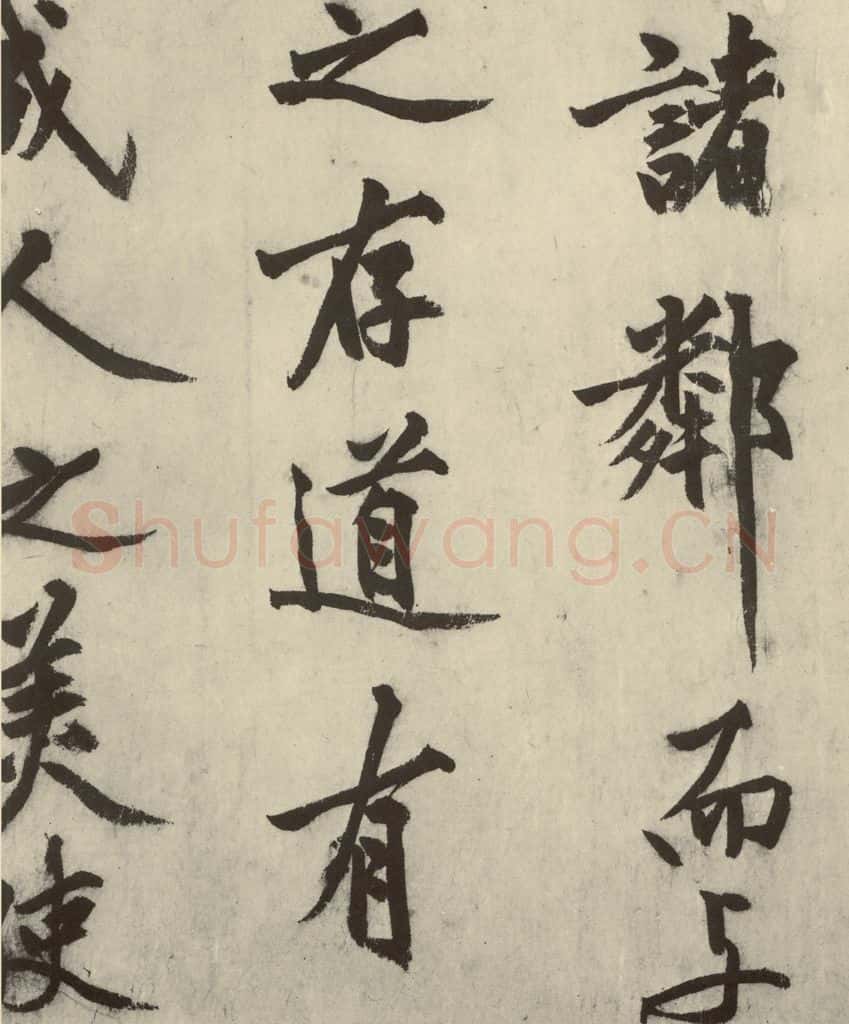 諸鄰而与
之存道有
成人之美使
Shufawang.CN